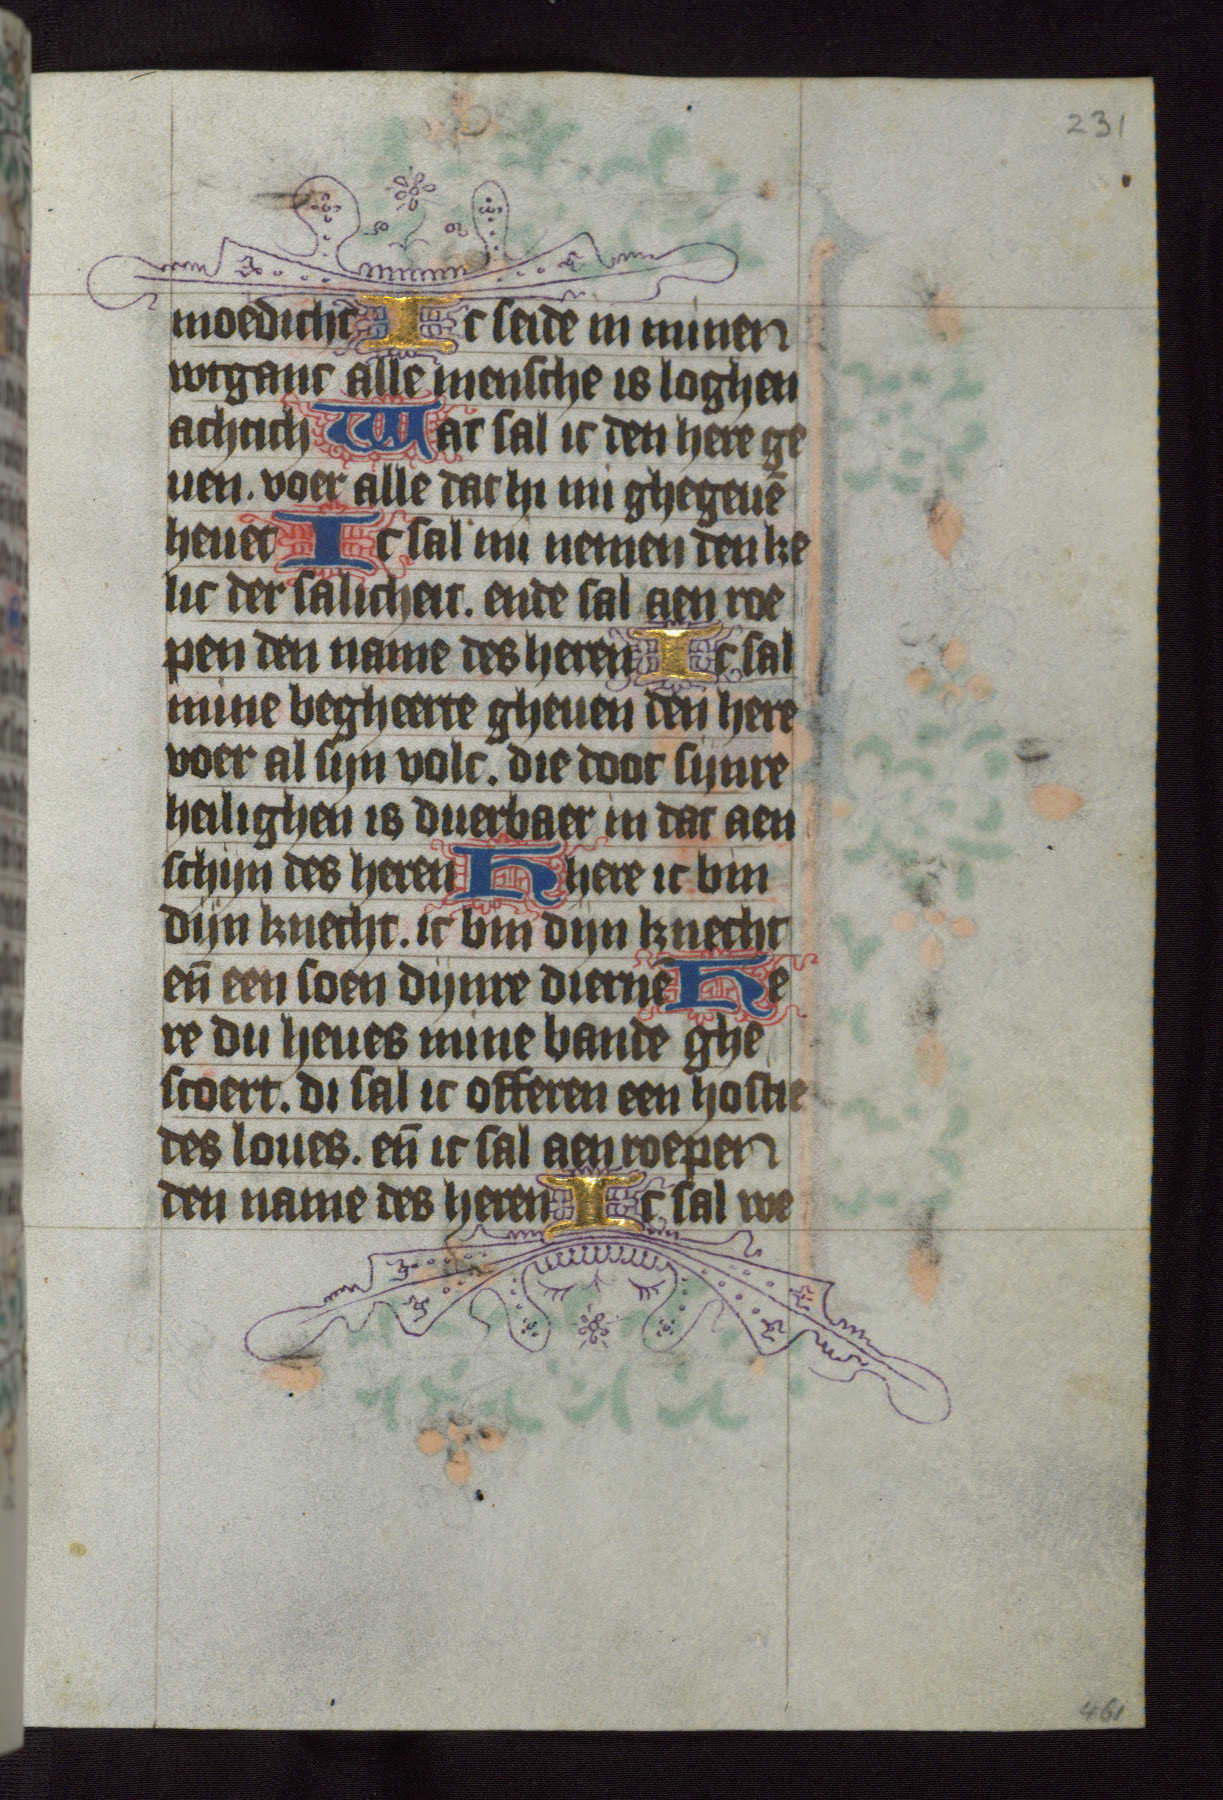 231
moedicht Ic seide in minen
wtganc alle mensche is loghen
achtich Wat sal ic den here ge
uen. voer alle dat hi mi ghegeuē
heuet Ic sal mi nemen den ke
lic der salicheit. ende sal aen roe
pen den name des heren Ic sal
mine begheerte gheuen den here
voer al sijn volc. die doot sijnre
heilighen is duerbaer in dat aen
schijn des heren H here ic bin
dijn knecht. ic bin dijn knecht
en̄ een soen dijnre diernē He
re du heues mine bande ghe
scoert. di sal ic offeren een hostie
des loues. en̄ ic sal aen roepen
den name des heren Ic sal we
461